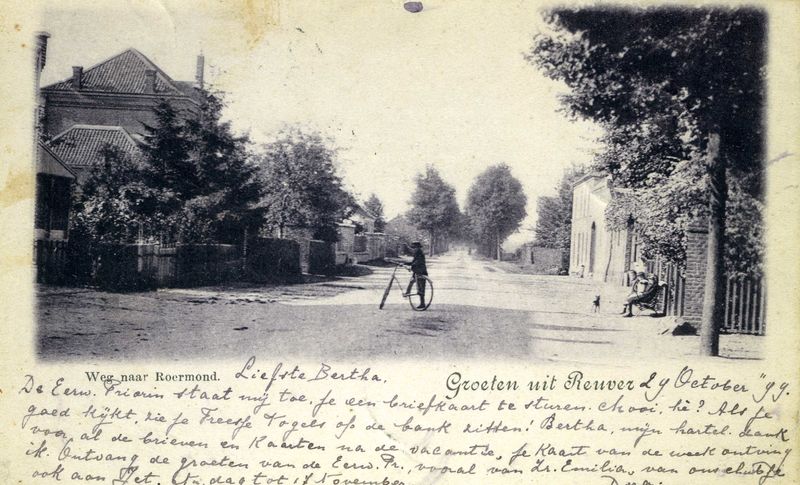 Weg naar Roermond. Liefste Bertha. Groeten uit Reuver 29 October "99.
De Eerw. Priorin staat mij toe, je een briefkaart te sturen. Mooi, hè? Als je
goed kijkt, zie je Freesje Togels op de bank zitten! Bertha, mijn hartel. dank
voor al de brieven en kaarten na de vacantie, je kaart van de week ontving
ik. Ontvang de groeten van de Eerw. Pr., vooral van Zr. Emilia, van ons
ook aan Jet. dag tot November